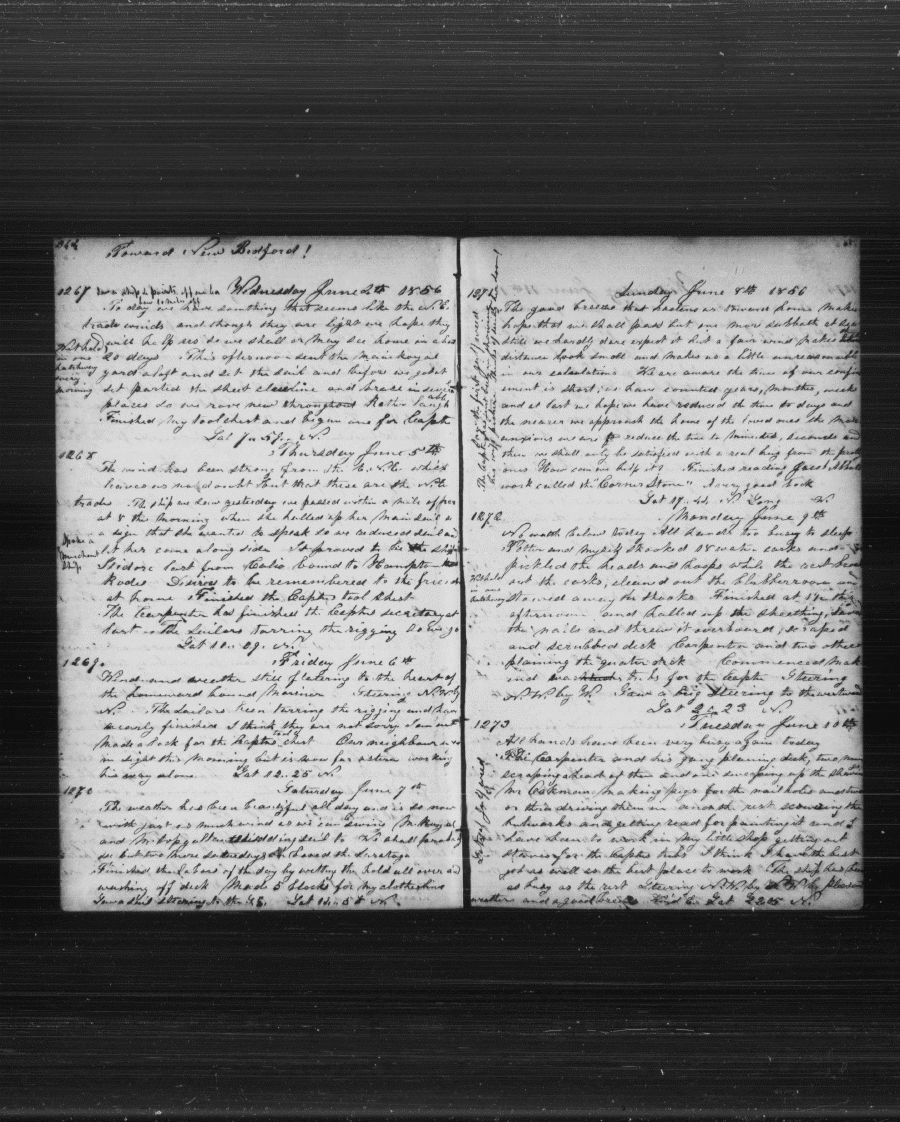 Toward New Bedford!
1267
Wednesday June 4th 1856
To day we have something that seems like the N.E.
trade winds and though they are light we hope they
will help us so we shall or may see home in about
20 days This afternoon sent the main royal
yard aloft and set the sail and before we got it
set parted the sheet clewline and brase in several
places so we rove new throughout Rather laughable
Finished my tool chest and begun one for Captn
Lat 7. 57. N.
Wet hold
in one
hatchway
every
morning
1268
Thursday June 5th
The wind has been strong from the N.N.E. which
leaves us no doubt but that these are the N.E.
trades The ship we saw yesterday we passed within a mile of her
at 8 the morning when she hulled up her main sail as
a sign that she wanted to speak so we reduced sail and
let her come along side It proved to be the ship
Isidore last from Calio bound to Hampton
Rodes Desires to be remembered to the friends
at home Finished the Captns tool chest
The Carpenter has finished the Captns secretary at
last the Sailors tarring the rigging So we go
Lat 10. 09. N.
Spoke a
merchant
ship
1269.
Friday June 6th
Wind and weather still flatering to the heart of
the homeward bound Mariner Steering N.N.W by
N. The Sailors been tarring the rigging and have
nearly finished I think they are not sorry I am not
Made a lock for the Captns tool chest Our neighbour was
in sight this morning but is now far astern working
his way alone Lat 12.. 25 N.
1270
Saturday June 7th
The weather has been beautiful all day and is so now
with just as much wind as we can swing M. Royal
and M. topgallant studding sail to We shall probably
see but two more Saturdays on board the Saratoga
Finished the labors of the day by wetting the hold all over and
washing off deck Made 5 blocks for my clothesline
Saw a sail steering to the S.E. Lat 14.. 58 N.
1271
Sunday June 8th 1856
The good breeze that hastens us toward home makes
hope that we shall pass but one more sabbath at sea
still we hardly dare expect it but a fair wind makes the
distance look small and makes us a little unreasonable
in our calculations We are aware the time of our confine
ment is short; we have counted years, months, weeks
and at last we hope we have reduced the time to days and
the nearer we approach the home of the loved ones the more
anxious we are to reduce the time to minutes, seconds and
then we shall only be satisfied with a real hug from the pretty
ones How can we help it? Finished reading Jacob Abbotts
work called the "Corner Stone" A very good book
Lat 17.. 44 N. Long W.
1272
Monday June 9th
No watch below today All hands too busy to sleep
Potter and myself shooked 18 water casks and
pickled the heads and hoops while the rest broke
out the casks, cleaned out the blubberroom and
stowed away the shooks Finished at 1 in the
afternoon and hulled up the sheathing, saved
the nails and threw it overboard, scraped
and scrubbed deck Carpenter and two others
plaining the quarter deck Commenced mak
ing tubs for the Captn Steering
N.N.W. by W. Saw a brig steering to the westward
Lat 20 23 N.
1273
Tuesday June 10th
All hands have been very busy again today
The Carpenter and his gang plaining deck, two men
scraping ahead of them and one sweeping up the shavings
Mr Oakman making pegs for the nail holes and two
or three driving them in and the rest scouring the
bulwarks and getting ready for painting it and I
have been to work in my little shop getting out
staves for the Captns tubs I think I have the best
job as well as the best place to work The ship has been
as busy as the rest Steering N.N.W. by W. pleasant
weather and a good breeze Lat 22.05 N.